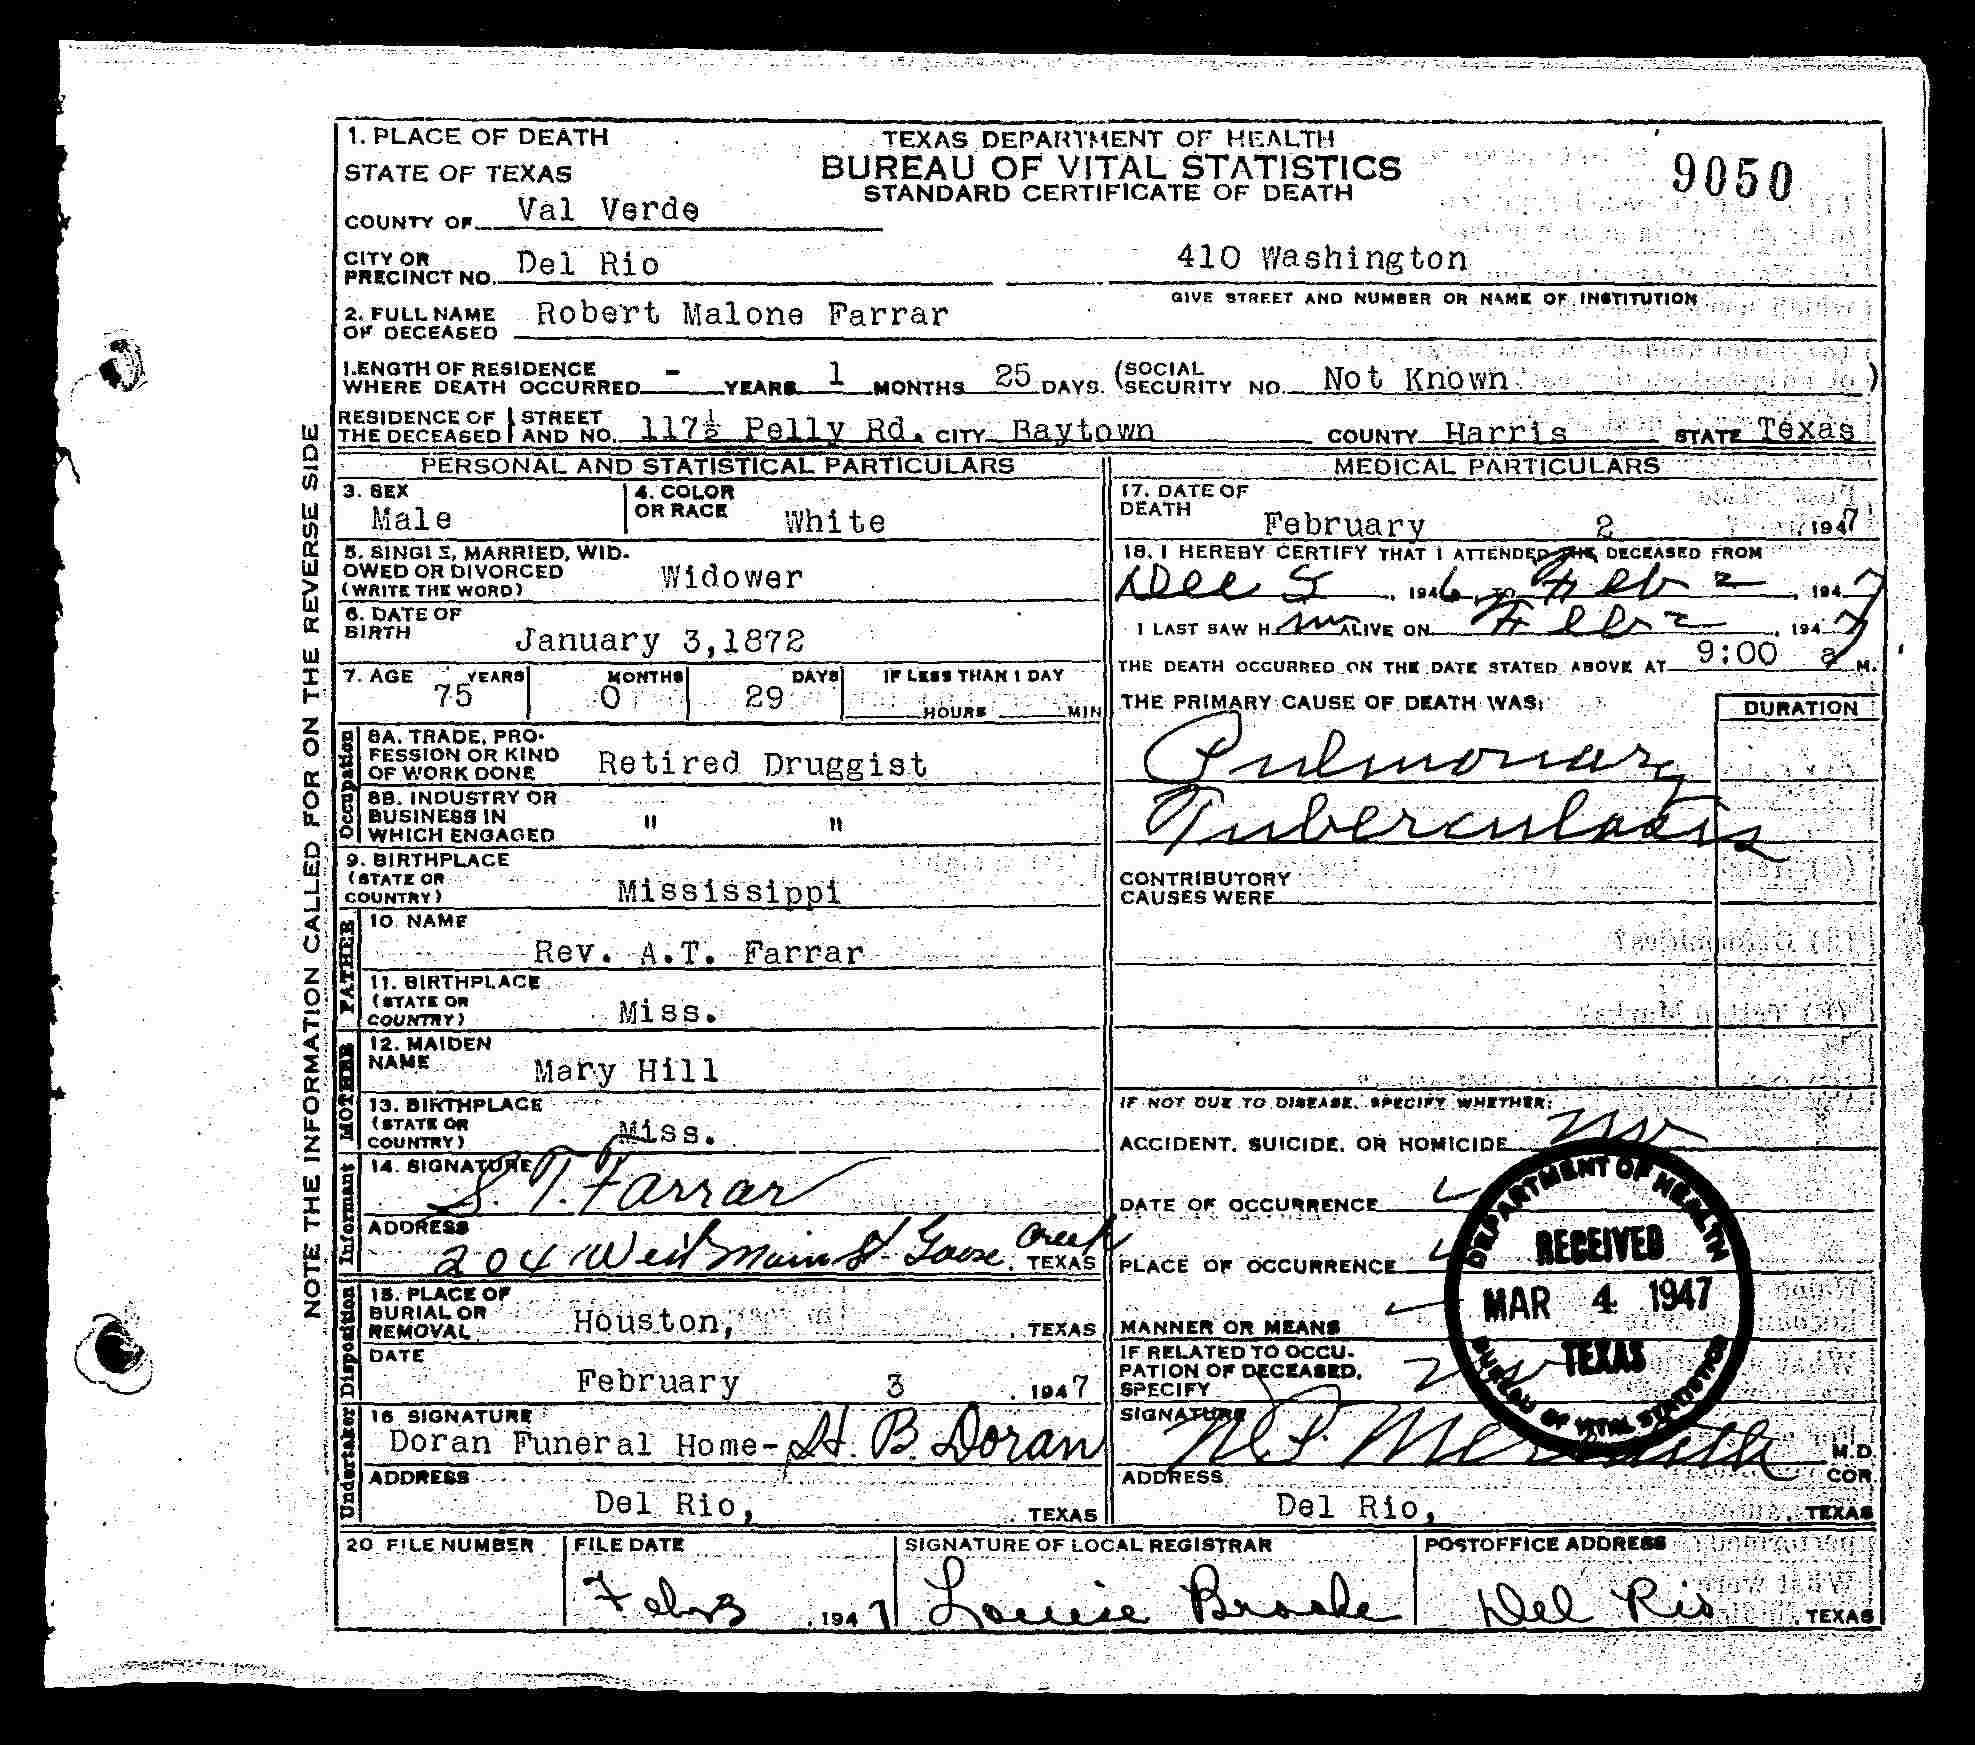 1. PLACE OF DEATH
TEXAS DEPARTMENT OF HEALTH
BUREAU OF VITAL STATISTICS
STANDARD CERTIFICATE OF DEATH
9050
STATE OF TEXAS
COUNTY OF Val Verde
CITY OR PRECINCT NO. Del Rio
410 Washington
GIVE STREET AND NUMBER OR NAME OF INSTITUTION
2. FULL NAME OF DECEASED Robert Malone Farrar
LENGTH OF RESIDENCE WHERE DEATH OCCURRED - YEARS 1 MONTHS 25 DAYS. (SOCIAL SECURITY NO. Not Known)
RESIDENCE OF THE DECEASED STREET AND NO. 117½ Pelly Rd. CITY Baytown COUNTY Harris STATE Texas
NOTE THE INFORMATION CALLED FOR ON THE REVERSE SIDE
PERSONAL AND STATISTICAL PARTICULARS
3. SEX
Male
4. COLOR OR RACE White
5. SINGLE, MARRIED, WIDOWED OR DIVORCED (WRITE THE WORD) Widower
6. DATE OF BIRTH January 3,1872
7. AGE 75 YEARS 0 MONTHS 29 DAYS IF LESS THAN 1 DAY HOURS MIN
Occupation
8A. TRADE, PROFESSION OR KIND OF WORK DONE Retired Druggist
8B. INDUSTRY OR BUSINESS IN WHICH ENGAGED " "
9. BIRTHPLACE (STATE OR COUNTRY) Mississippi
FATHER
10 NAME Rev. A.T. Farrar
11. BIRTHPLACE (STATE OR COUNTRY) Miss.
MOTHER
12. MAIDEN NAME Mary Hill
13. BIRTHPLACE (STATE OR COUNTRY) Miss.
Informant
14. SIGNATURE S. T. Farrar
ADDRESS 204 West Main St. Goose Creek, TEXAS
Disposition
15. PLACE OF BURIAL OR REMOVAL Houston, TEXAS
DATE February 3, 1947
Undertaker
16 SIGNATURE Doran Funeral Home- H. B. Doran
ADDRESS Del Rio, TEXAS
MEDICAL PARTICULARS
17. DATE OF DEATH February 2 1947
18. I HEREBY CERTIFY THAT I ATTENDED THE DECEASED FROM
Dec 5, 1946, TO Feb 2, 1947
I LAST SAW H im ALIVE ON Feb 2, 1947
THE DEATH OCCURRED ON THE DATE STATED ABOVE AT 9:00 a M.
THE PRIMARY CAUSE OF DEATH WAS:
DURATION
Pulmonary
Tuberculosis
CONTRIBUTORY CAUSES WERE
IF NOT DUE TO DISEASE, SPECIFY WHETHER:
ACCIDENT, SUICIDE, OR HOMICIDE no
DATE OF OCCURRENCE
PLACE OF OCCURRENCE
MANNER OR MEANS
IF RELATED TO OCCUPATION OF DECEASED, SPECIFY no
DEPARTMENT OF HEALTH
RECEIVED
MAR 4 1947
TEXAS
BUREAU OF VITAL STATISTICS
SIGNATURE Meredith M.D.
COR.
ADDRESS Del Rio, TEXAS
20 FILE NUMBER
FILE DATE Feb 3, 1947
SIGNATURE OF LOCAL REGISTRAR Louise
POSTOFFICE ADDRESS Del Rio, TEXAS